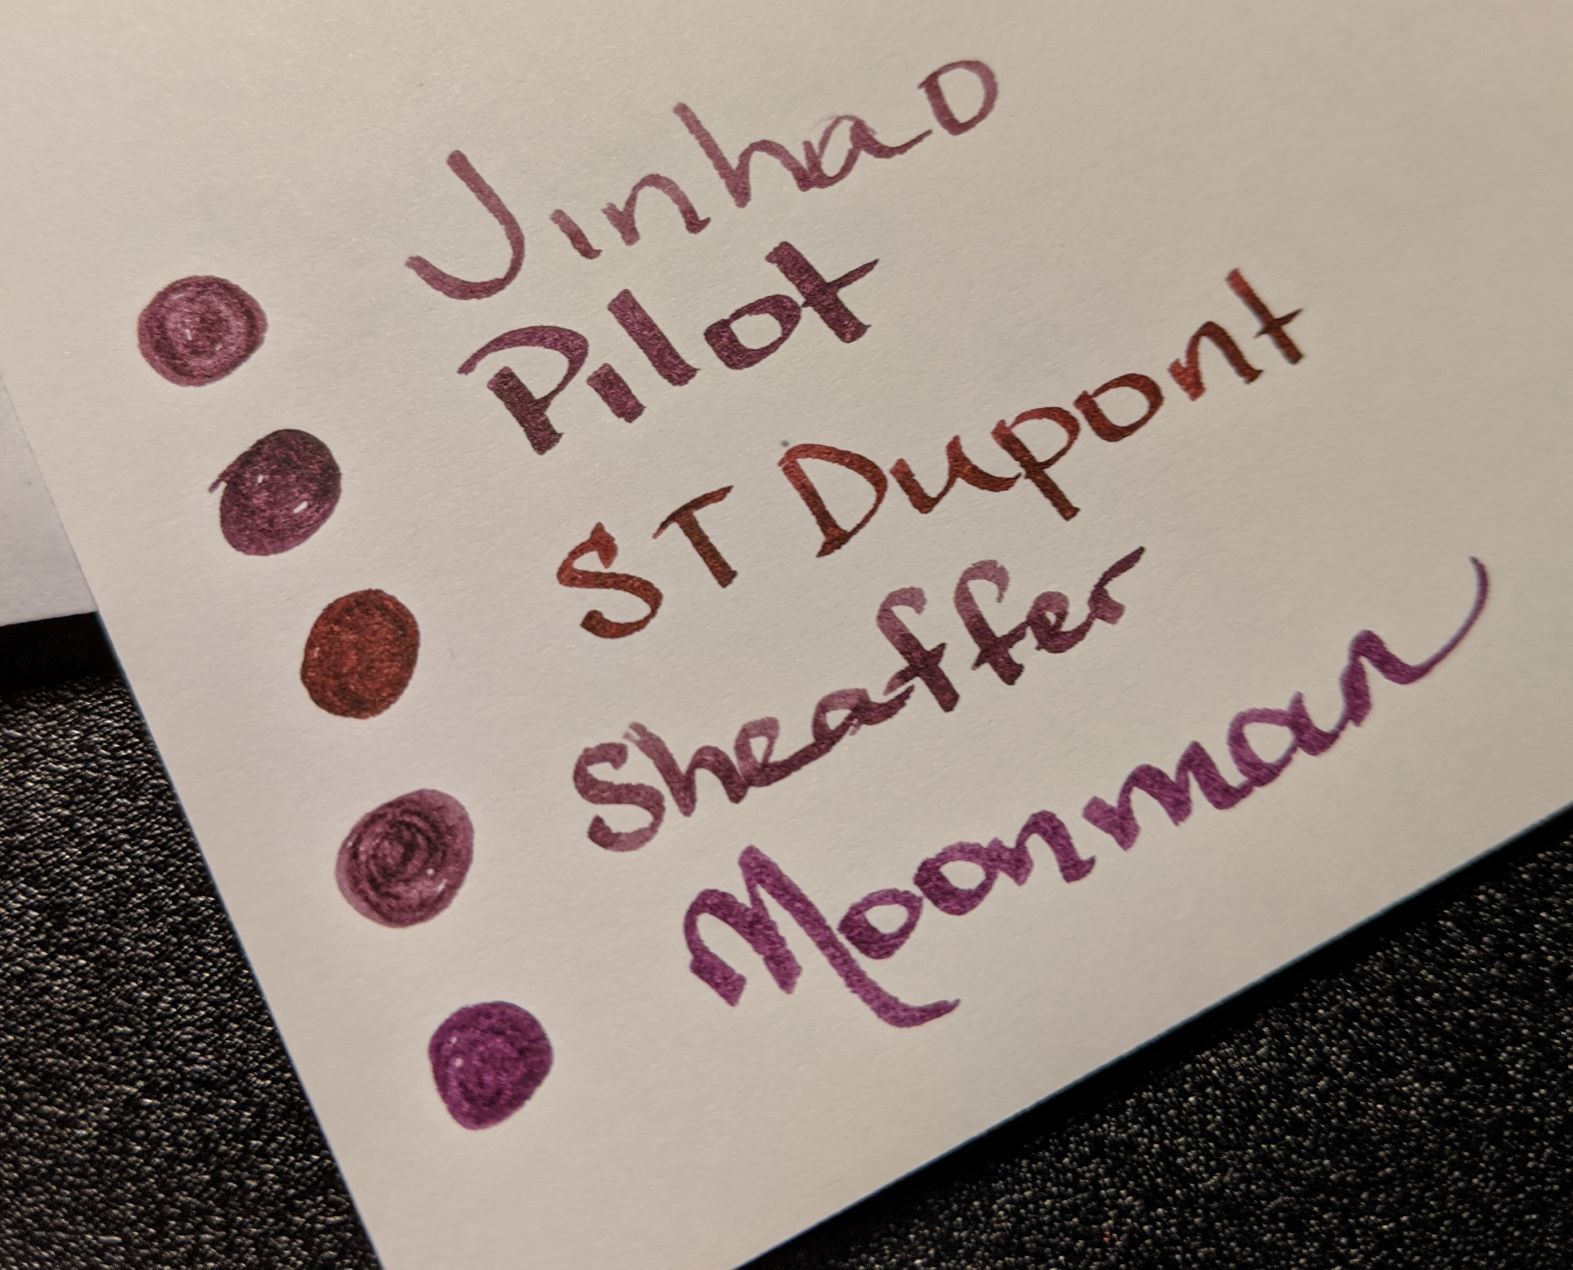 Jinhao
Pilot
ST Dupont
Sheaffer
Moonman